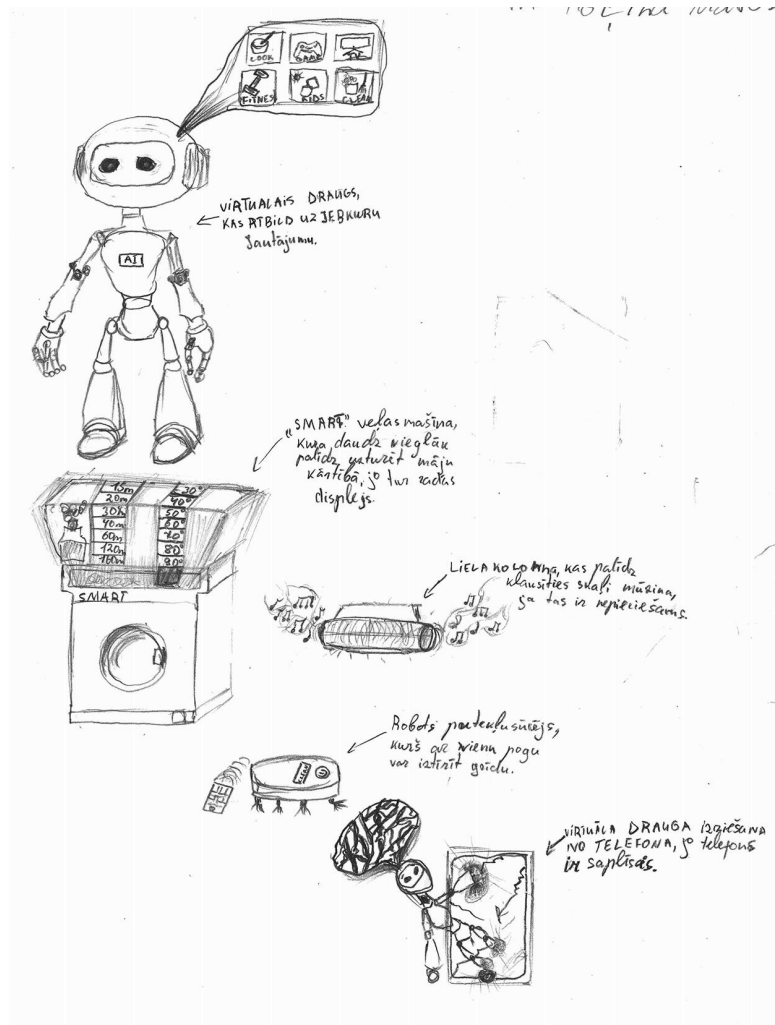 COOK GAME TV
FITNES KIDS CLEAN
VIRTUALAIS DRAUGS,
KAS ATBILD UZ JEBKURU
Jautājumu.
AI
„SMART" veļas mašīna,
kura daudz vieglāk
palīdz uzturēt māju
kārtībā, jo tur rādās
displejs.
15m 30°
20m 40°
30m 50°
40m 60°
60m 70°
120m 80°
160m 90°
SMART
LIELA KOLONNA, kas palīdz
klausīties skaļi mūziku,
ja tas ir nepieciešams.
Robots putekļusūcējs,
kurš ar vienu pogu
var iztīrīt grīdu.
CLEAN
VIRTUĀLA DRAUGA izgiešana
NO TELEFONA, jo telefons
ir saplīsis.